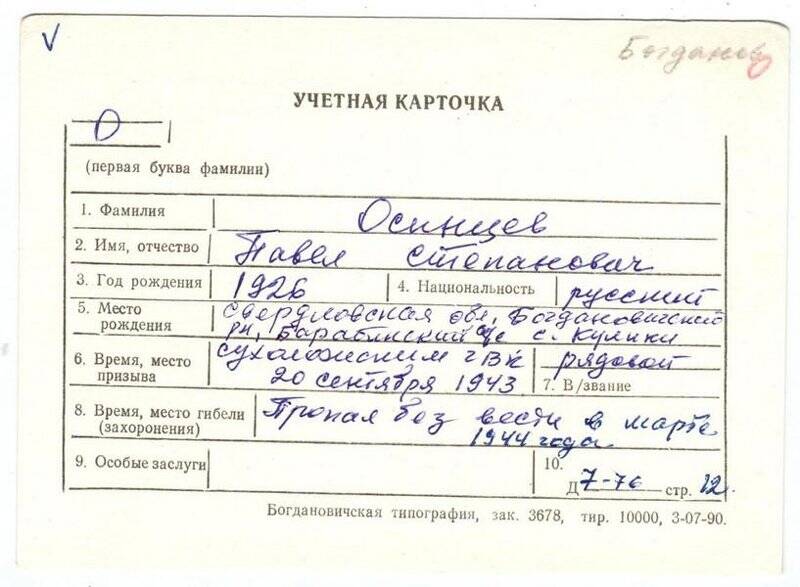 V
Богданов
УЧЕТНАЯ КАРТОЧКА
О
(первая буква фамилии)
1. Фамилия Осинцев
2. Имя, отчество Павел Степанович
3. Год рождения 1926 4. Национальность русский
5. Место рождения Свердловская обл, Богдановичский
рн, Барабинский с/с с. Кулики
6. Время, место призыва Сухоложским гВк рядовой
20 сентября 1943 7. В/звание
8. Время, место гибели (захоронения) Пропал без вести в марте
1944 года
9. Особые заслуги 10.
Д 7-76 стр. 12.
Богдановичская типография, зак. 3678, тир. 10000, 3-07-90.